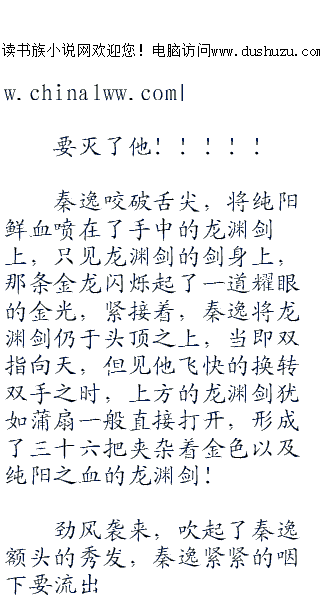 读书族小说网欢迎您！电脑访问www.dushuzu.com
w.china1ww.com|
要灭了他！！！！！
秦逸咬破舌尖，将纯阳
鲜血喷在了手中的龙渊剑
上，只见龙渊剑的剑身上，
那条金龙闪烁起了一道耀眼
的金光，紧接着，秦逸将龙
渊剑仍于头顶之上，当即双
指向天，但见他飞快的换转
双手之时，上方的龙渊剑犹
如蒲扇一般直接打开，形成
了三十六把夹杂着金色以及
纯阳之血的龙渊剑！
劲风袭来，吹起了秦逸
额头的秀发，秦逸紧紧的咽
下要流出